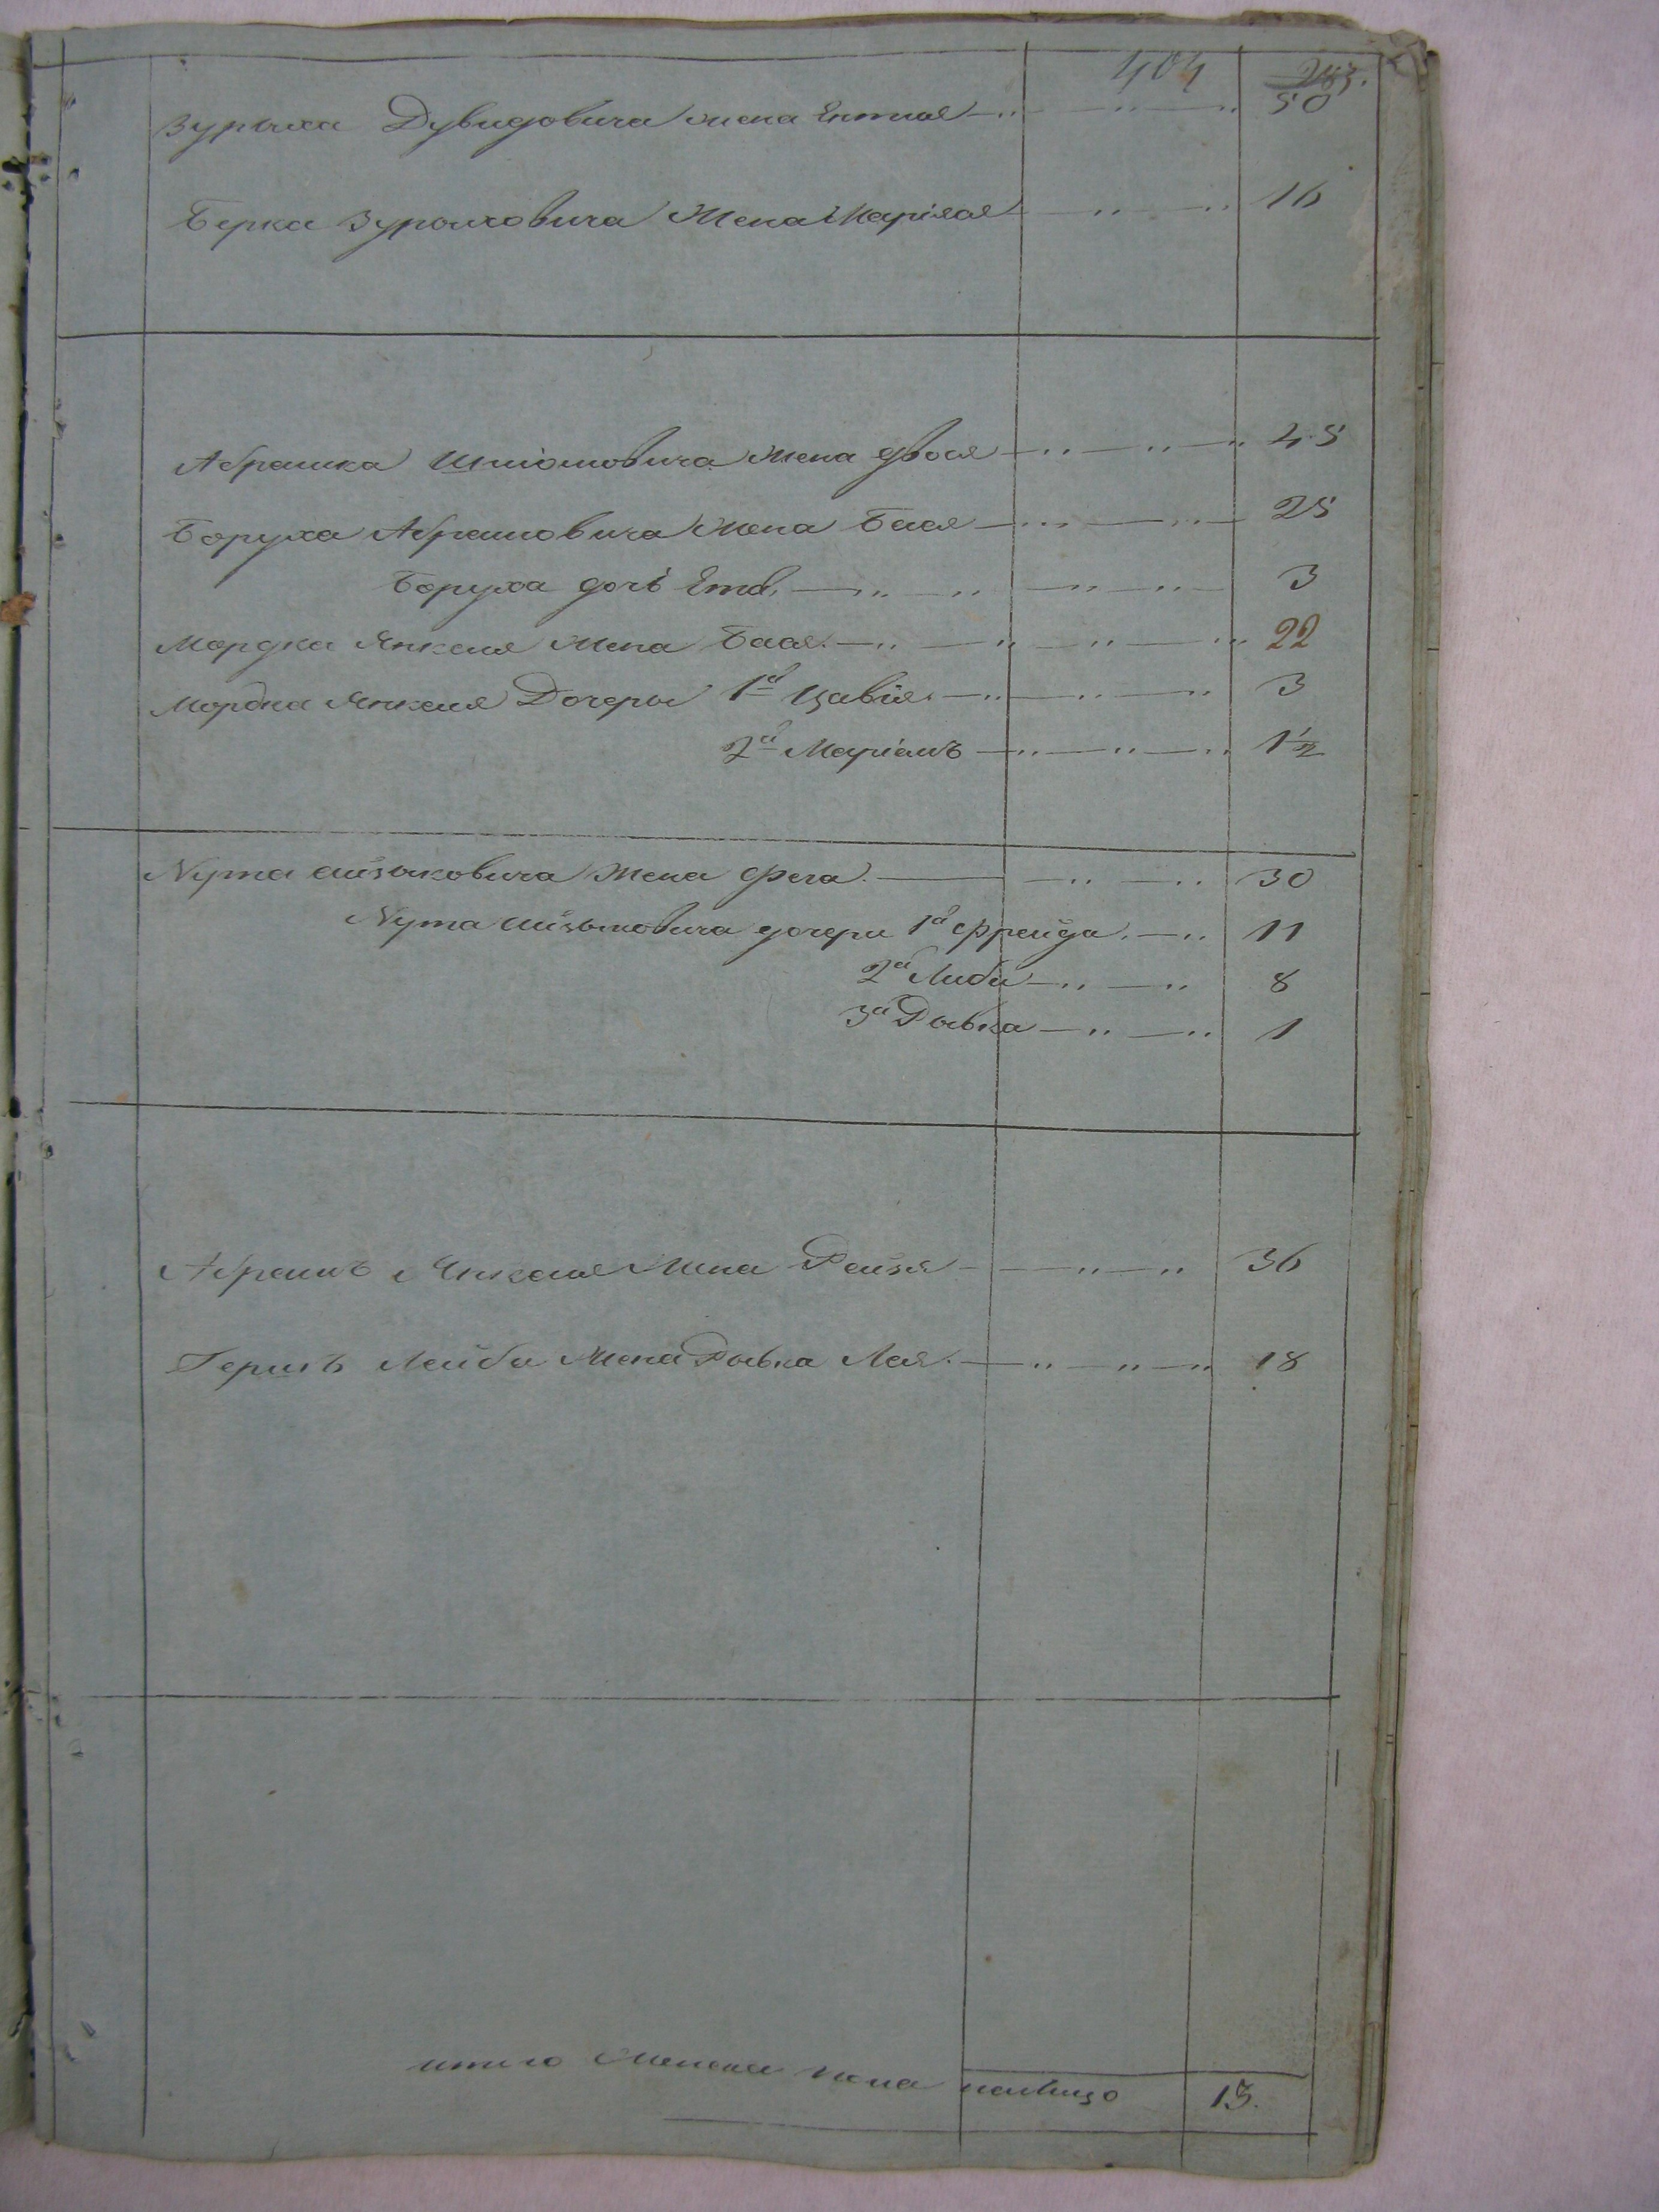 404 283.
Зурыха Дувидовича жена Ентая 50
Берка Зурыховича Жена Маріяся 16
Абрашка Шліомовича жена двося 45
Боруха Абрамовича жена Бася 25
Боруха дочь Етя. 3
Мордка Янкеля жена Бася. 22
Мордка Янкеля Дочеры 1я Цавія. 3
2я Маріамъ 1½
Нута Айзыковича жена Фега. 30
Нута Айзыковича дочери 1я Фрейда. 11
2я Либа 8
3я Рывка 1
Абрамъ Янкеля жена Рейзя 36
Гершъ Лейбы жена Рывка Лея. 18
итого женска пола налицо 15.